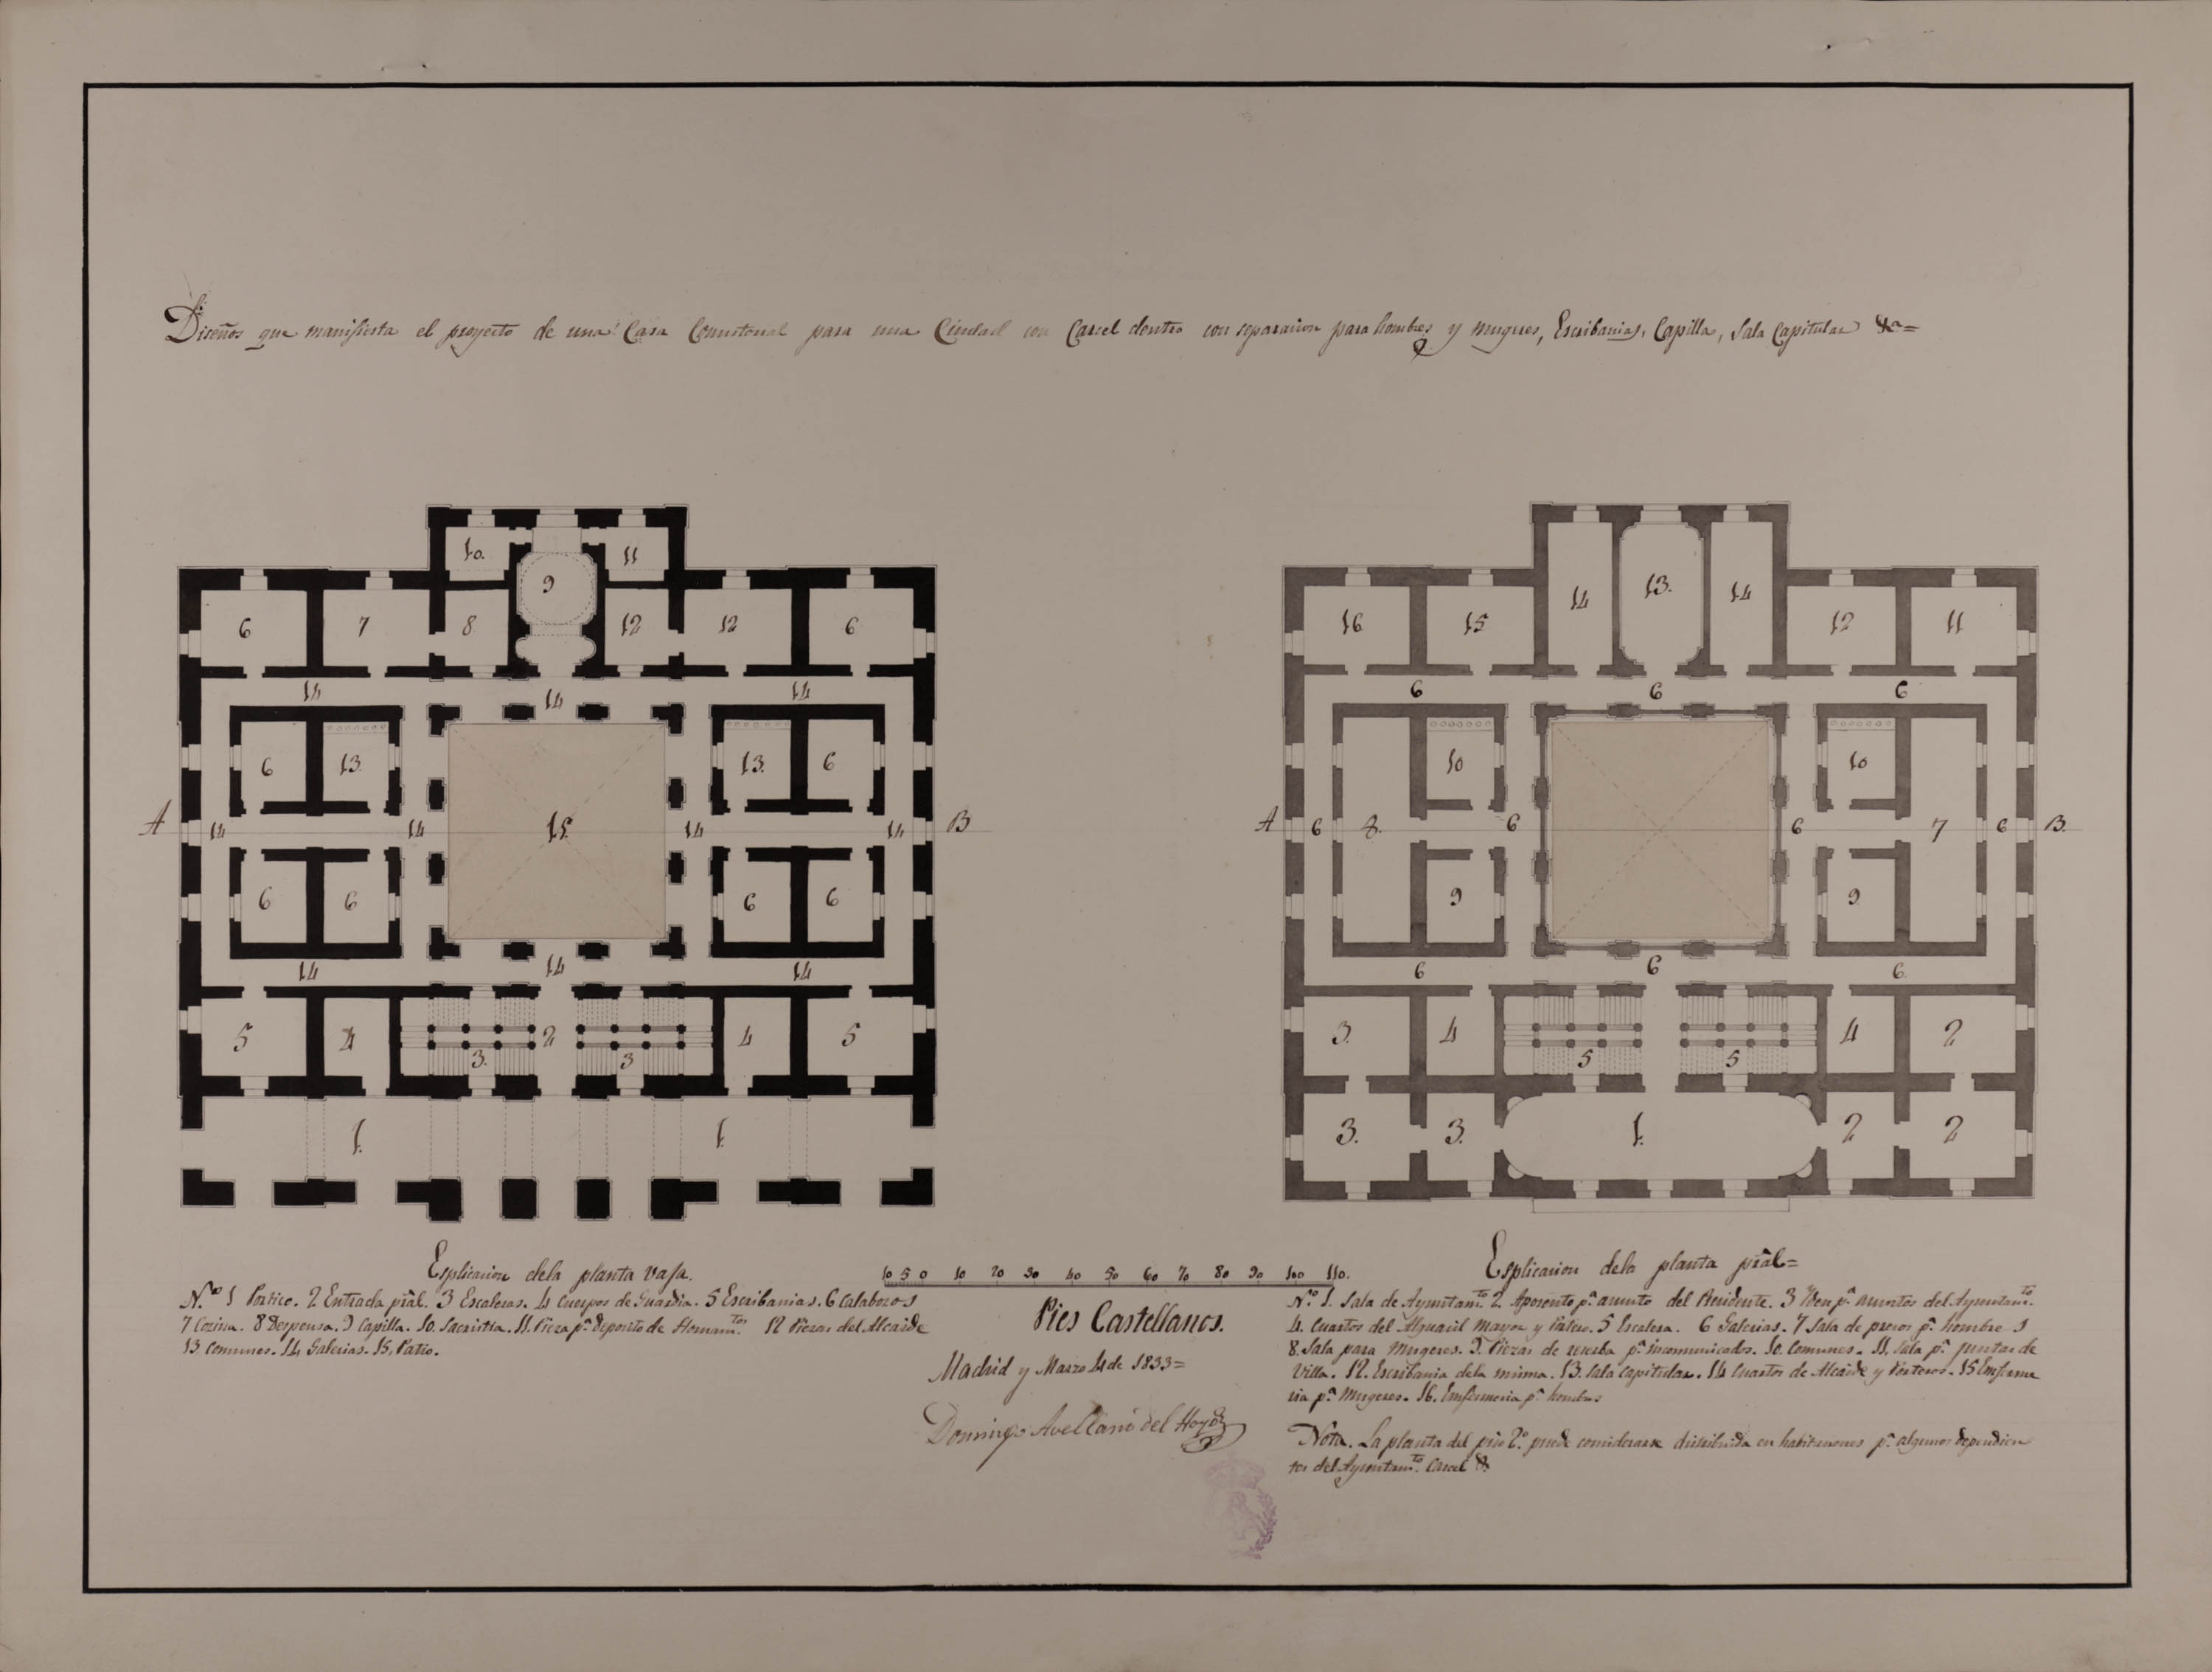 Diseños que manifiesta el proyecto de una Casa Consistorial para una Ciudad con Carcel dentro con separacion para hombres y mugeres, Escribanias, Capilla, Sala Capitular &a=
10. 9 11
6 7 8 12 12 6
14 14 14
6 13. 13. 6
A 14 14 15. 14 14 B
6 6 6 6
14 14 14
5 4 3. 2 3 4 5
1. 1.
14 13. 14
16 15 12 11
6 6 6
10 10
A 6 8. 6 6 7 6 B.
9 9
6 6 6.
3. 4 5 5 4 2
3. 3. 1. 2 2
Esplicacion dela planta vaja.
N.ro 1 Portico. 2 Entrada pràl. 3 Escaleras. 4 Cuerpos de Guardia. 5 Escribanias. 6 Calabozos
7 Cozina. 8 Despensa. 9 Capilla. 10. Sacristia. 11. Pieza pa. deposito de Hornamtos. 12 Piezas del Alcaide
13. Comunes. 14 Galerias. 15, Patio.
10 5 0 10 20 30 40 50 60 70 80 90 100 110.
Pies Castellanos.
Madrid y Marzo 4 de 1833=
Domingo Avellano del Hoyo
Esplicacion dela planta prâl=
N.ro 1. Sala de Ayuntamto. 2 Aposento pa. asunto del Presidente. 3 Yden pa. asuntos del Ayuntamto.
4. Cuartos del Alguacil mayor y Portero. 5 Escalera. 6 Galerias. 7 Sala de presos pa. hombres
8. Sala para mugeres. 9. Piezas de reserba pa. incomunicados. 10. Comunes. 11. Sala pa. Juntas de
Villa. 12. Escribania dela misma. 13. Sala Capitular. 14 Cuartos de Alcaide y Porteros. 15 Emferme
ria pa. Mugeres. 16. Emfermeria pa. hombres
Nota. La planta del piso 2º. puede considerarse distribuida en habitaciones pa. algunos dependien
tes del Ayuntamto. Carcel &.